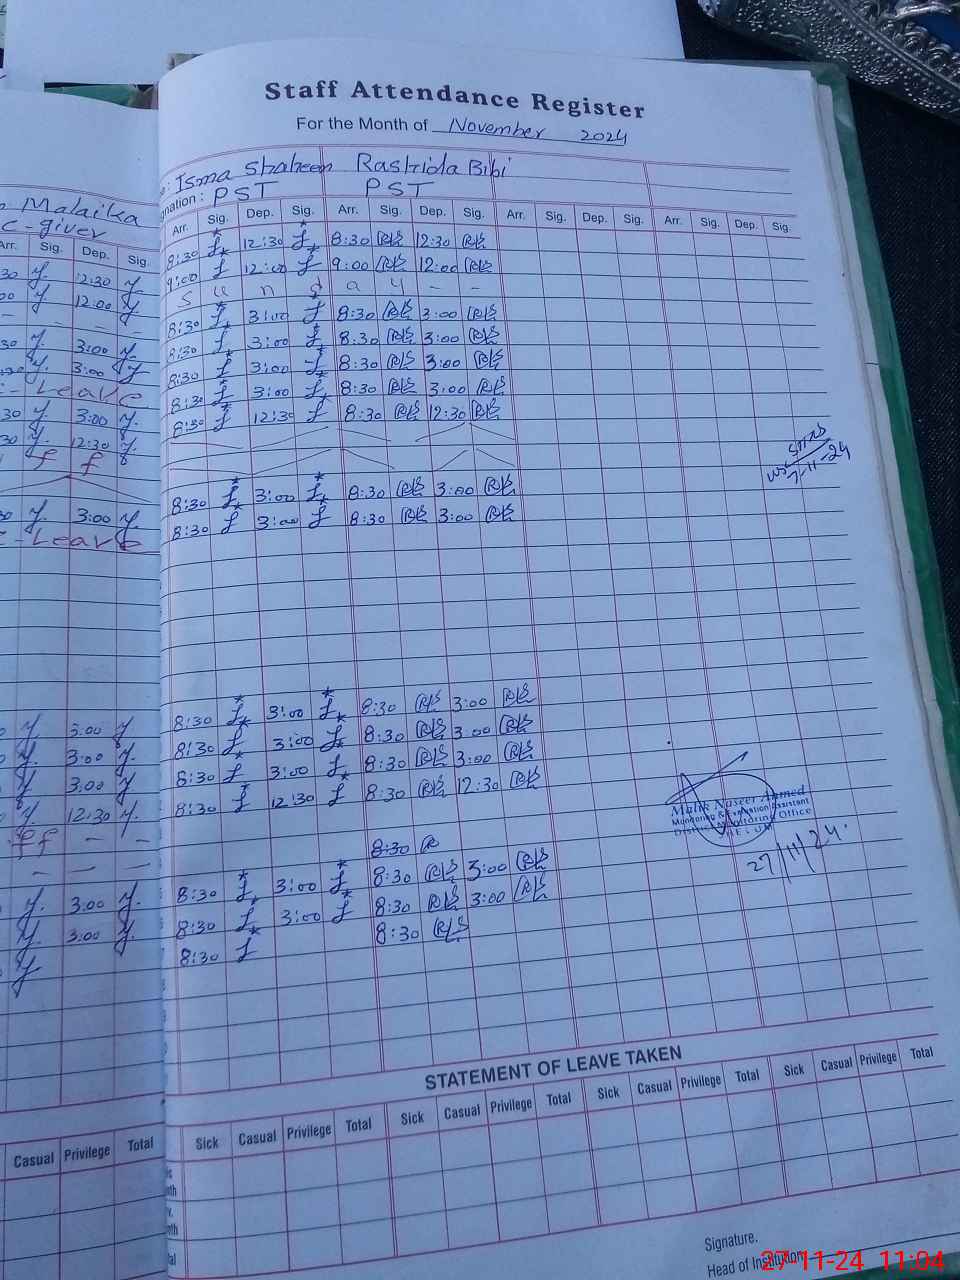 Staff Attendance Register
For the Month of November 2024
Isma Shaheen Rashida Bibi
Malaika
nation: PST PST
C-giver
Arr. Sig. Dep. Sig. Arr. Sig. Dep. Sig. Arr. Sig. Dep. Sig. Arr. Sig. Dep. Sig. Arr. Sig. Dep. Sig.
30 12:30 8:30 12:30 8:30 12:30
00 12:00 9:00 12:00 9:00 12:00
- - - - S u n d a y - -
30 3:00 8:30 3:00 8:30 3:00
3:00 8:30 3:00 8:30 3:00
Leave 8:30 3:00 8:30 3:00
30 3:00 8:30 3:00 8:30 3:00
30 12:30 8:30 12:30 8:30 12:30
f f
7-11-24
8:30 3:00 8:30 3:00
3:00 8:30 3:00 8:30 3:00
Leave
8:30 3:00 8:30 3:00
3:00 8:30 3:00 8:30 3:00
3:00 8:30 3:00 8:30 3:00
3:00 8:30 12:30 8:30 12:30
12:30
f f - -
8:30
- - -
3:00 8:30 3:00 8:30 3:00
3:00 8:30 3:00 8:30 3:00
8:30 8:30
Malik Naseer Ahmed
Monitoring & Evaluation Assistant
District Monitoring Office
27/11/24.
STATEMENT OF LEAVE TAKEN
Casual Privilege Total Sick Casual Privilege Total Sick Casual Privilege Total Sick Casual Privilege Total Sick Casual Privilege Total
Signature.
Head of Institution
27-11-24 11:04